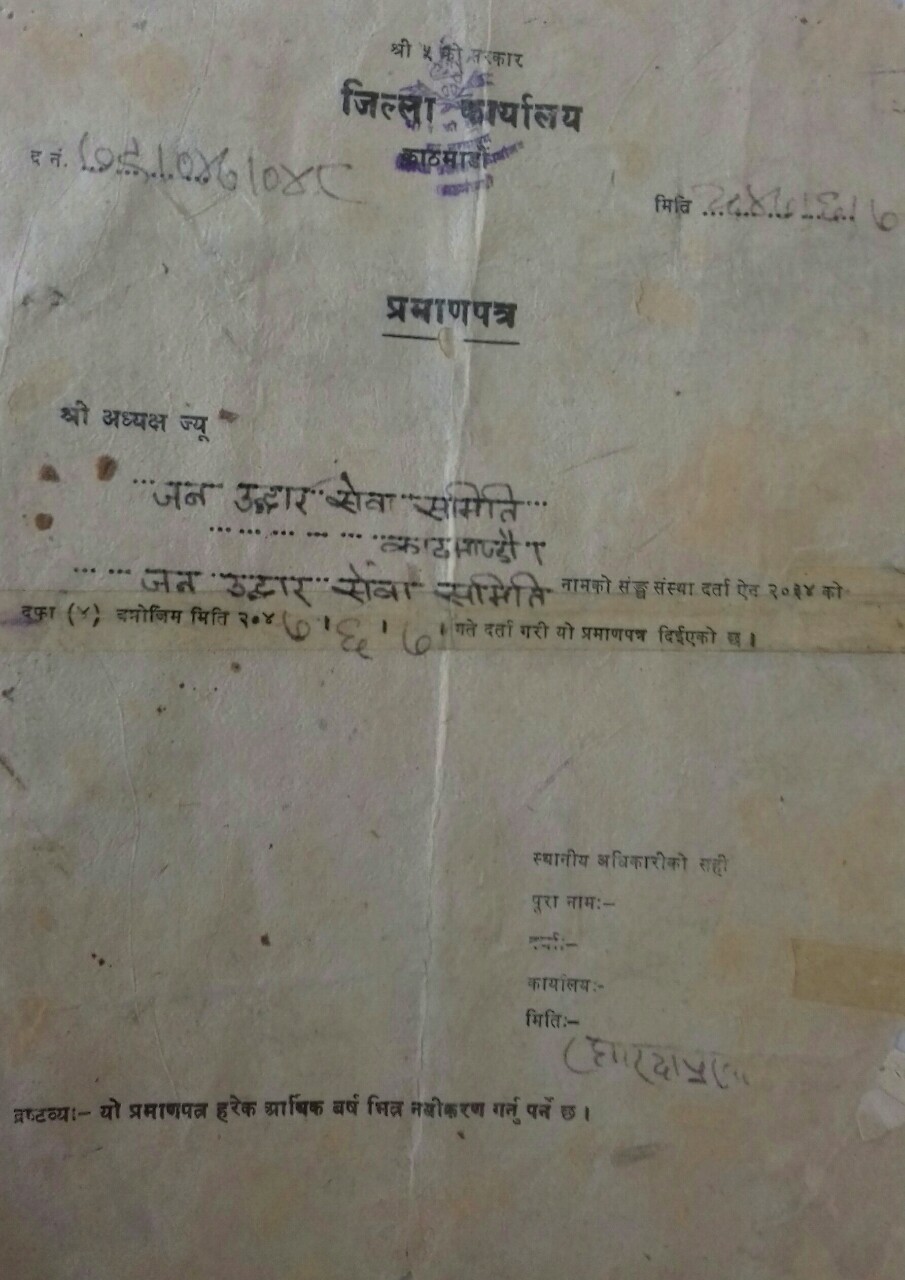 श्री ५ को सरकार
जिल्ला कार्यालय
काठमाडौं
द नं. १७३।०४७।०४८
मिति २०४७।६।७
प्रमाणपत्र
श्री अध्यक्ष ज्यू
जन उद्धार सेवा समिति
काठमाण्डौ।
जन उद्धार सेवा समिति नामको संङ्घ संस्था दर्ता ऐन २०३४ को
दफा (४) बमोजिम मिति २०४७।६।७। गते दर्ता गरी यो प्रमाणपत्र दिईएको छ।
स्थानीय अधिकारीको सही
पूरा नाम:-
दर्जा:-
कार्यालय:-
मिति:-
द्रष्टव्य:- यो प्रमाणपत्र हरेक आर्थिक बर्ष भित्र नवीकरण गर्नु पर्ने छ।